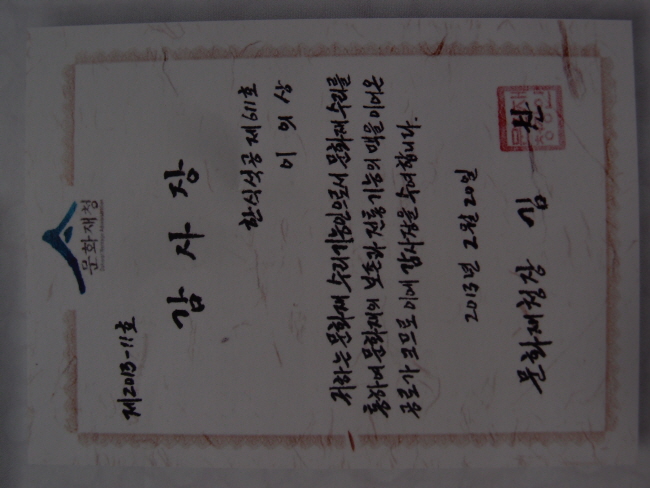 문화재청
제2013-11호
감사장
한식석공 제611호
이의상
귀하는 문화재 수리기능인으로서 문화재 수리를
통하여 문화재의 보존과 전통기능의 맥을 이어온
공로가 크므로 이에 감사장을 수여합니다.
2013년 2월 20일
문화재청장 김 찬
문화재청장인